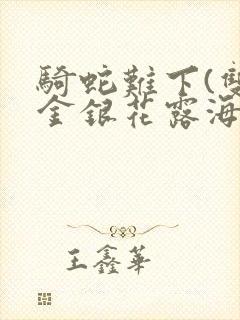 騎蛇難下(雙
金銀花露海
王鑫華